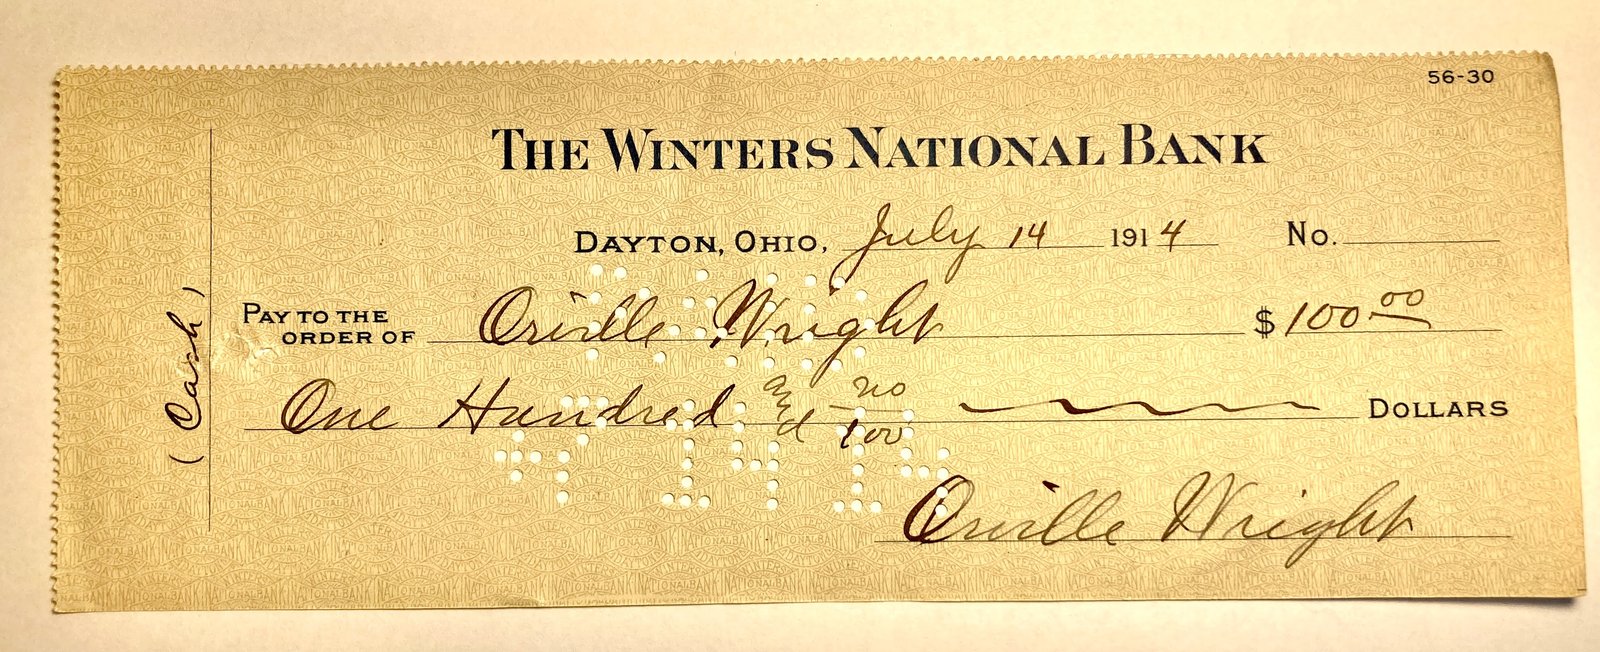 56-30
THE WINTERS NATIONAL BANK
DAYTON, OHIO, July 14 1914 No.
PAY TO THE ORDER OF Orville Wright $100 00
One Hundred and no/100 DOLLARS
Orville Wright
(Cash)